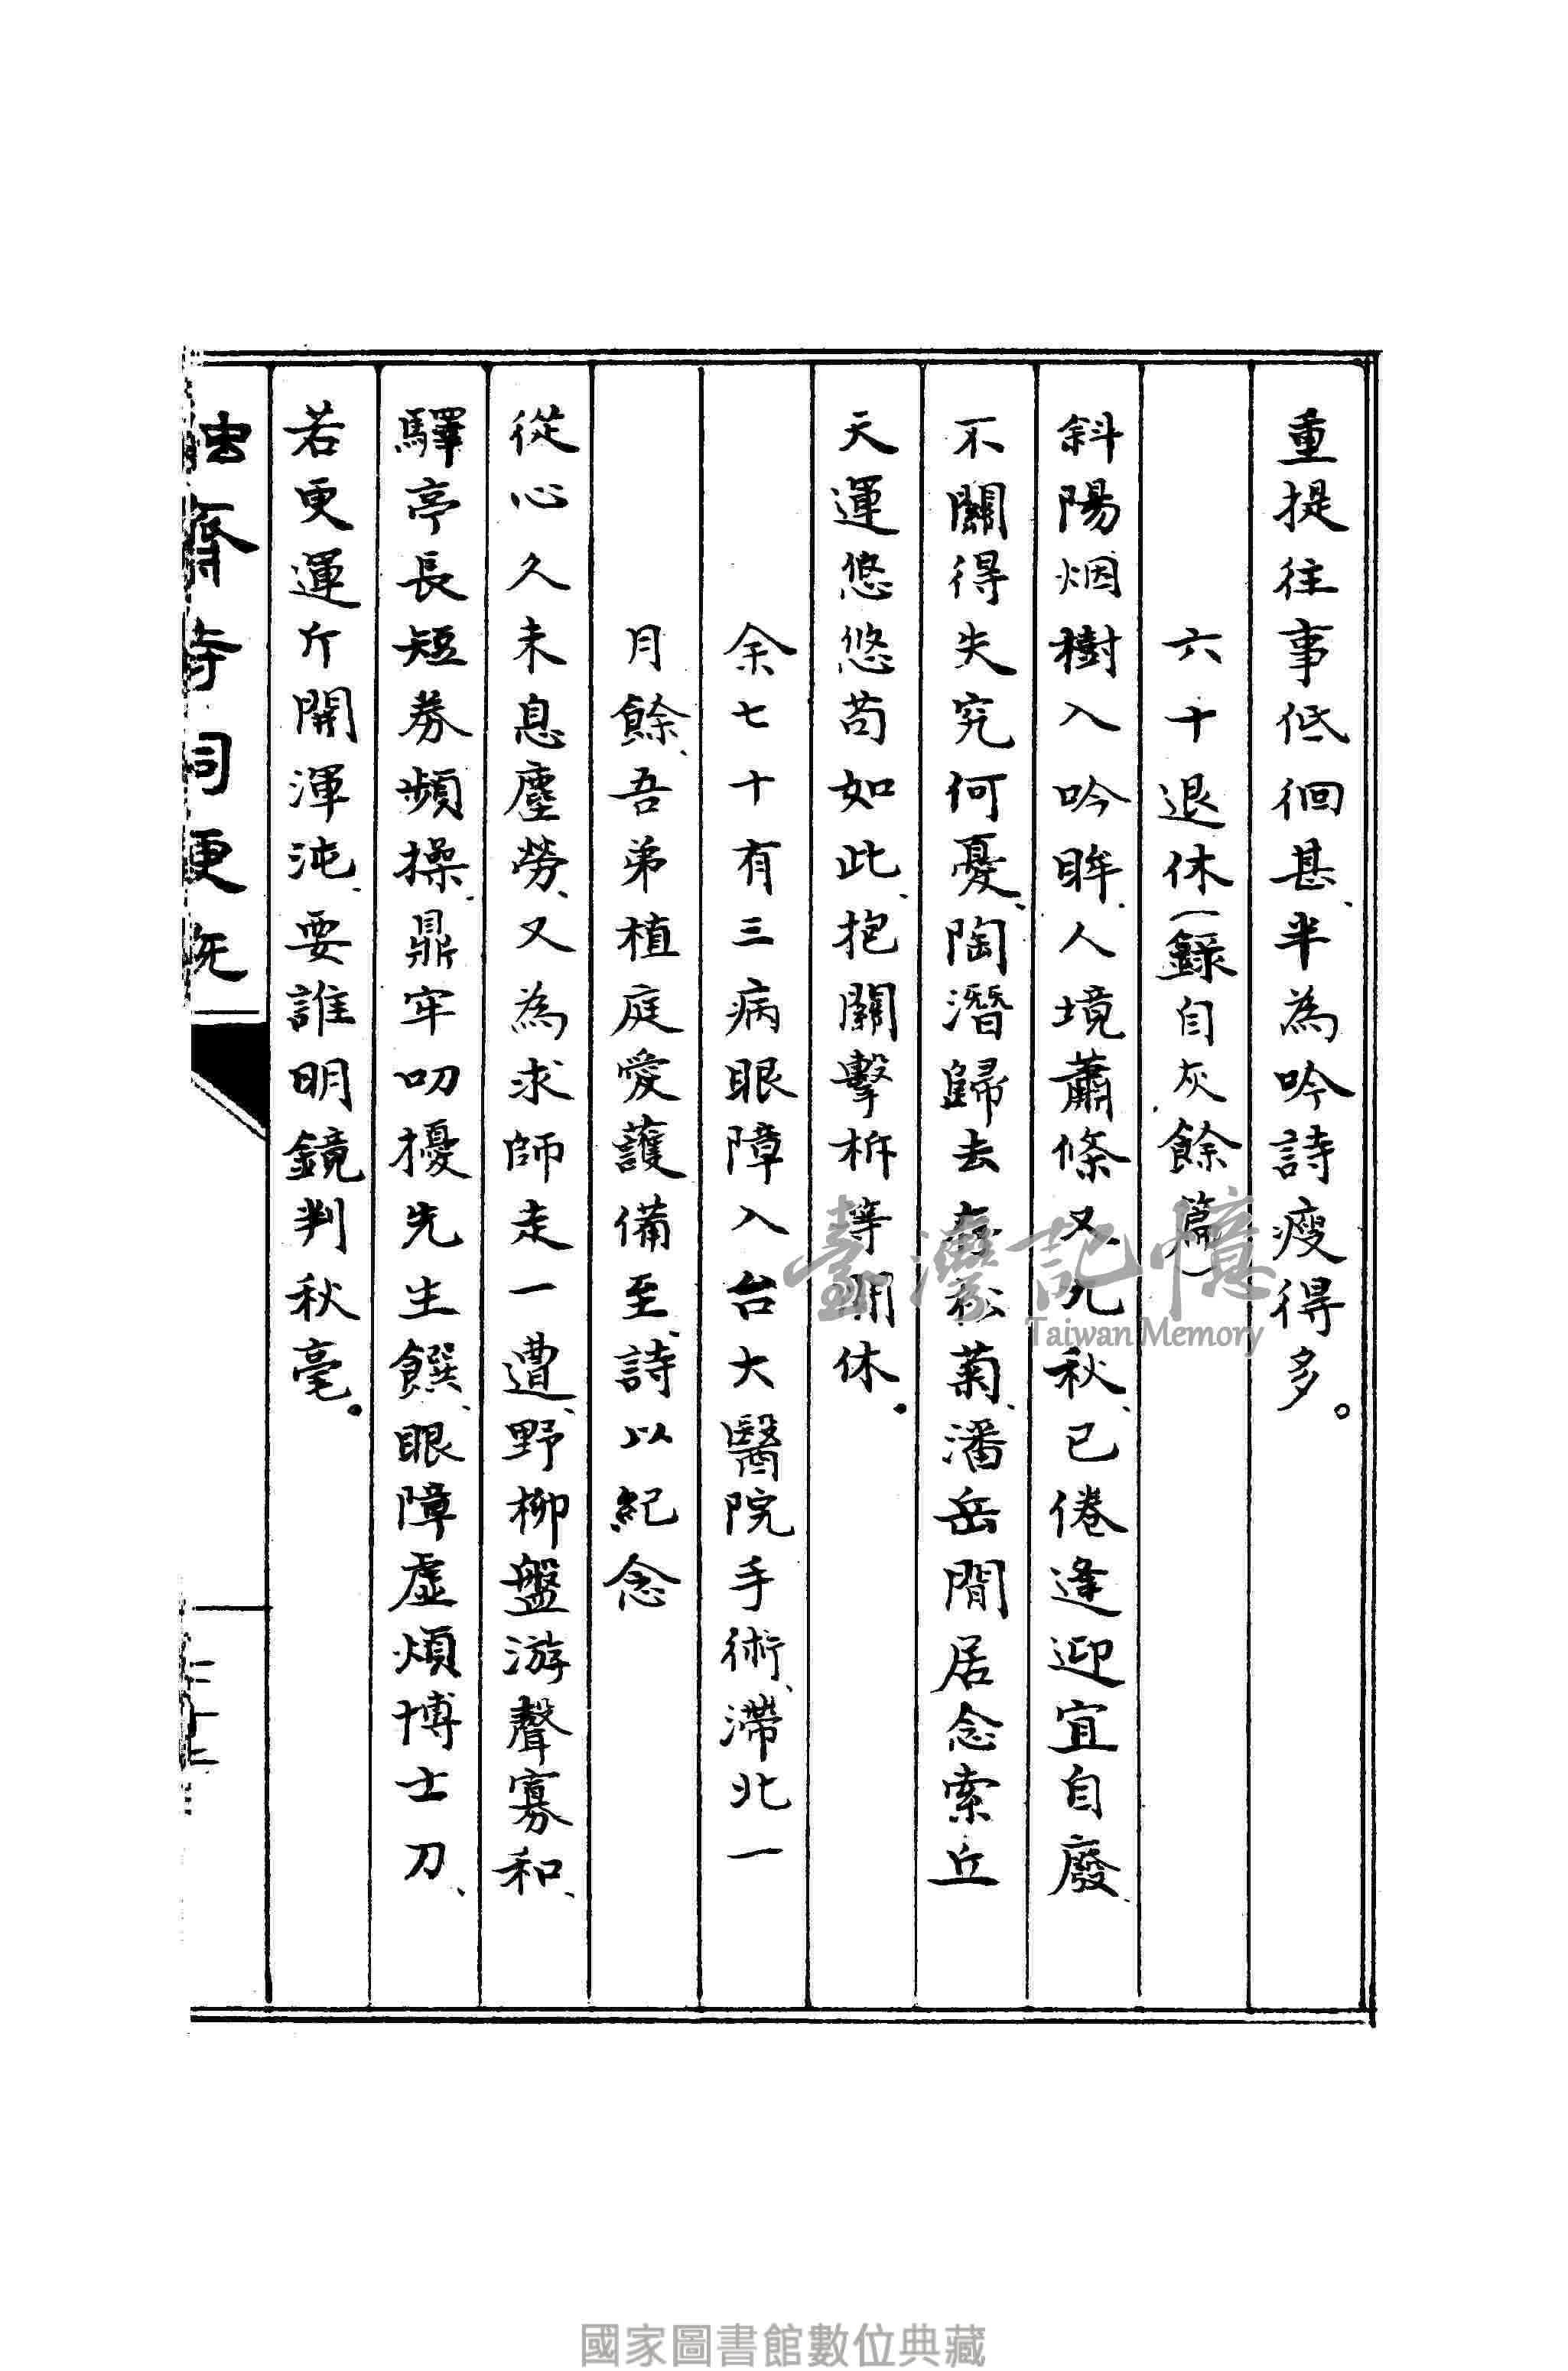 重提往事低徊甚、半為吟詩瘦得多。
六十退休（錄自灰餘篇）
斜陽烟樹入吟眸、人境蕭條又九秋、已倦逢迎宜自廢、
不關得失究何憂、陶潛歸去存松菊、潘岳閒居念索丘
天運悠悠苟如此、抱關擊柝等閒休。
余七十有三病眼障入台大醫院手術、滯北一
月餘、吾弟植庭愛護備至、詩以紀念
從心久未息塵勞、又為求師走一遭、野柳盤游聲寡和、
驛亭長短券頻操、鼎牢叨擾先生饌、眼障虛煩博士刀、
若更運斤開渾沌、要誰明鏡判秋毫。
臺灣記憶
Taiwan Memory
國家圖書館數位典藏